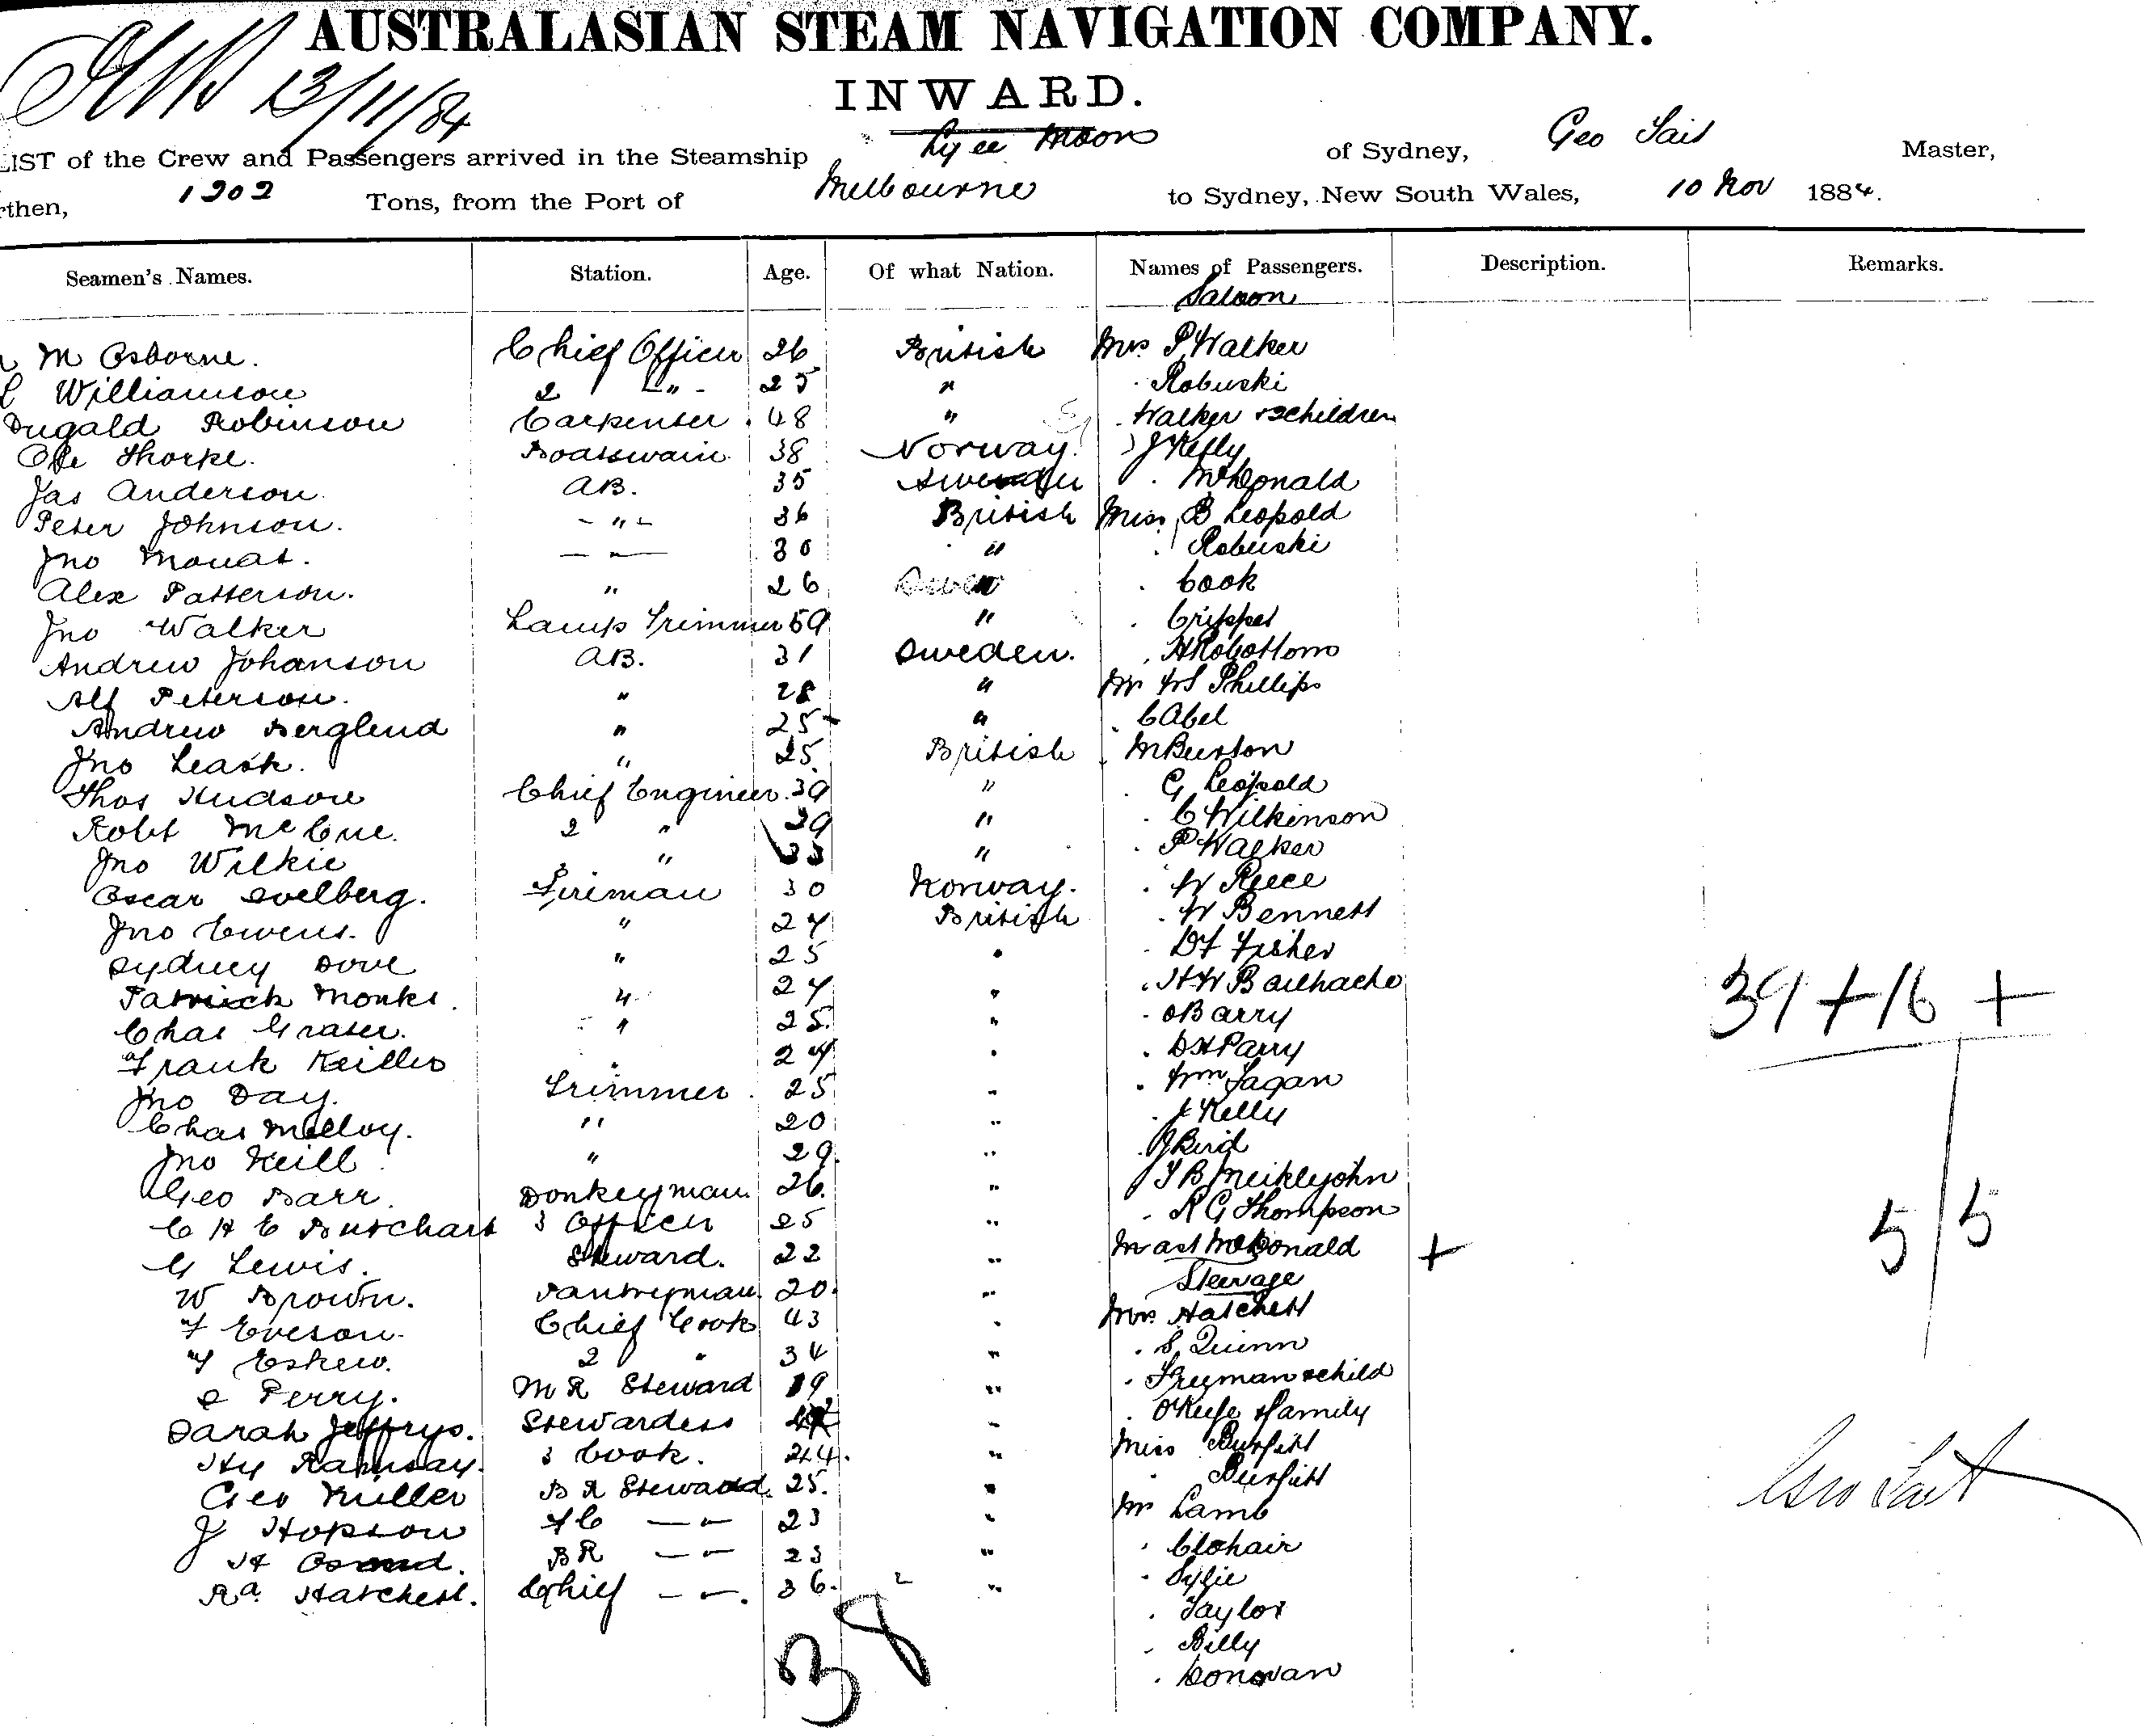 AUSTRALASIAN STEAM NAVIGATION COMPANY.
13/11/84
INWARD.
LIST of the Crew and Passengers arrived in the Steamship Ly ee Moon of Sydney, Geo Sait Master,
rthen, 1202 Tons, from the Port of Melbourne to Sydney, New South Wales, 10 Nov 1884.
Seamen's Names. Station. Age. Of what Nation. Names of Passengers. Description. Remarks.
Saloon
M Osborne. Chief Officer 26 British Mrs P Walker
Williamson 2 " 25 " . Robuski
Dugald Robinson Carpenter . 48 " . Walker & 2 children
Ole Thorke. Boatswain 38 Norway. J Kelly
Jas Anderson. AB. 35 . McDonald
Peter Johnson. " 36 British Miss B Leopold
Jno Mouat. 30 " . Robuski
Alex Patterson. " 26 " . Cook
Jno Walker Lamp Trimmer 59 " .
Andrew Johanson AB. 31 Sweden. . H Robottom
Alf Peterson. " 28 " Mr Phillips
Andrew Berglund " 25 " . C Abel
Jno Leask. " 25. British . M Burton
Thos Hudson Chief Engineer. 39 " . G Leopold
Robt McCue. 2 " 39 " . C Wilkinson
Jno Wilkie " 33 " . P Walker
Oscar Fireman 30 Norway. . W Reece
Jno Ewens. " 27 British . W Bennett
Sydney Dove " 25 " . Fisher
Patrick Monks. " 27 " . H W Bailhache
Chas Graser. " 25. " . O Barry
Frank Keiller . 27 " . D H Parry
Jno Day. Trimmer . 25 " . Wm Fagan
Chas Melloy. " 20 " . J Kelly
Jno Neill " 29. " . J Bird
Geo Barr. Donkeyman. 26. " T B Meiklejohn
C H E Butchart 3 Officer 25 " . R G Thompson
G Lewis. Steward. 22 " Mast McDonald +
Steerage
W Brown. Pantryman. 20. " Mrs Hatchett
F Eveson. Chief Cook 43 " . S Quinn
F Eskew. 2 " 34 " . Freeman & child
Perry. M R Steward 19 " . O'Keefe & family
Sarah Jeffrys. Stewardess " Miss Burfitt
Hy Ramsay. 3 Cook. 24. " . Burfitt
Geo Miller B R Steward. 25. " Mr Lamb
J Hopson F C — " 23 " . Clohair
H B R — " 23 " .
Rd. Hatchett. Chief — " . 36. " . Taylor
. Billy
. Donovan
38
39 + 16 +
5 / 5
Geo Sait